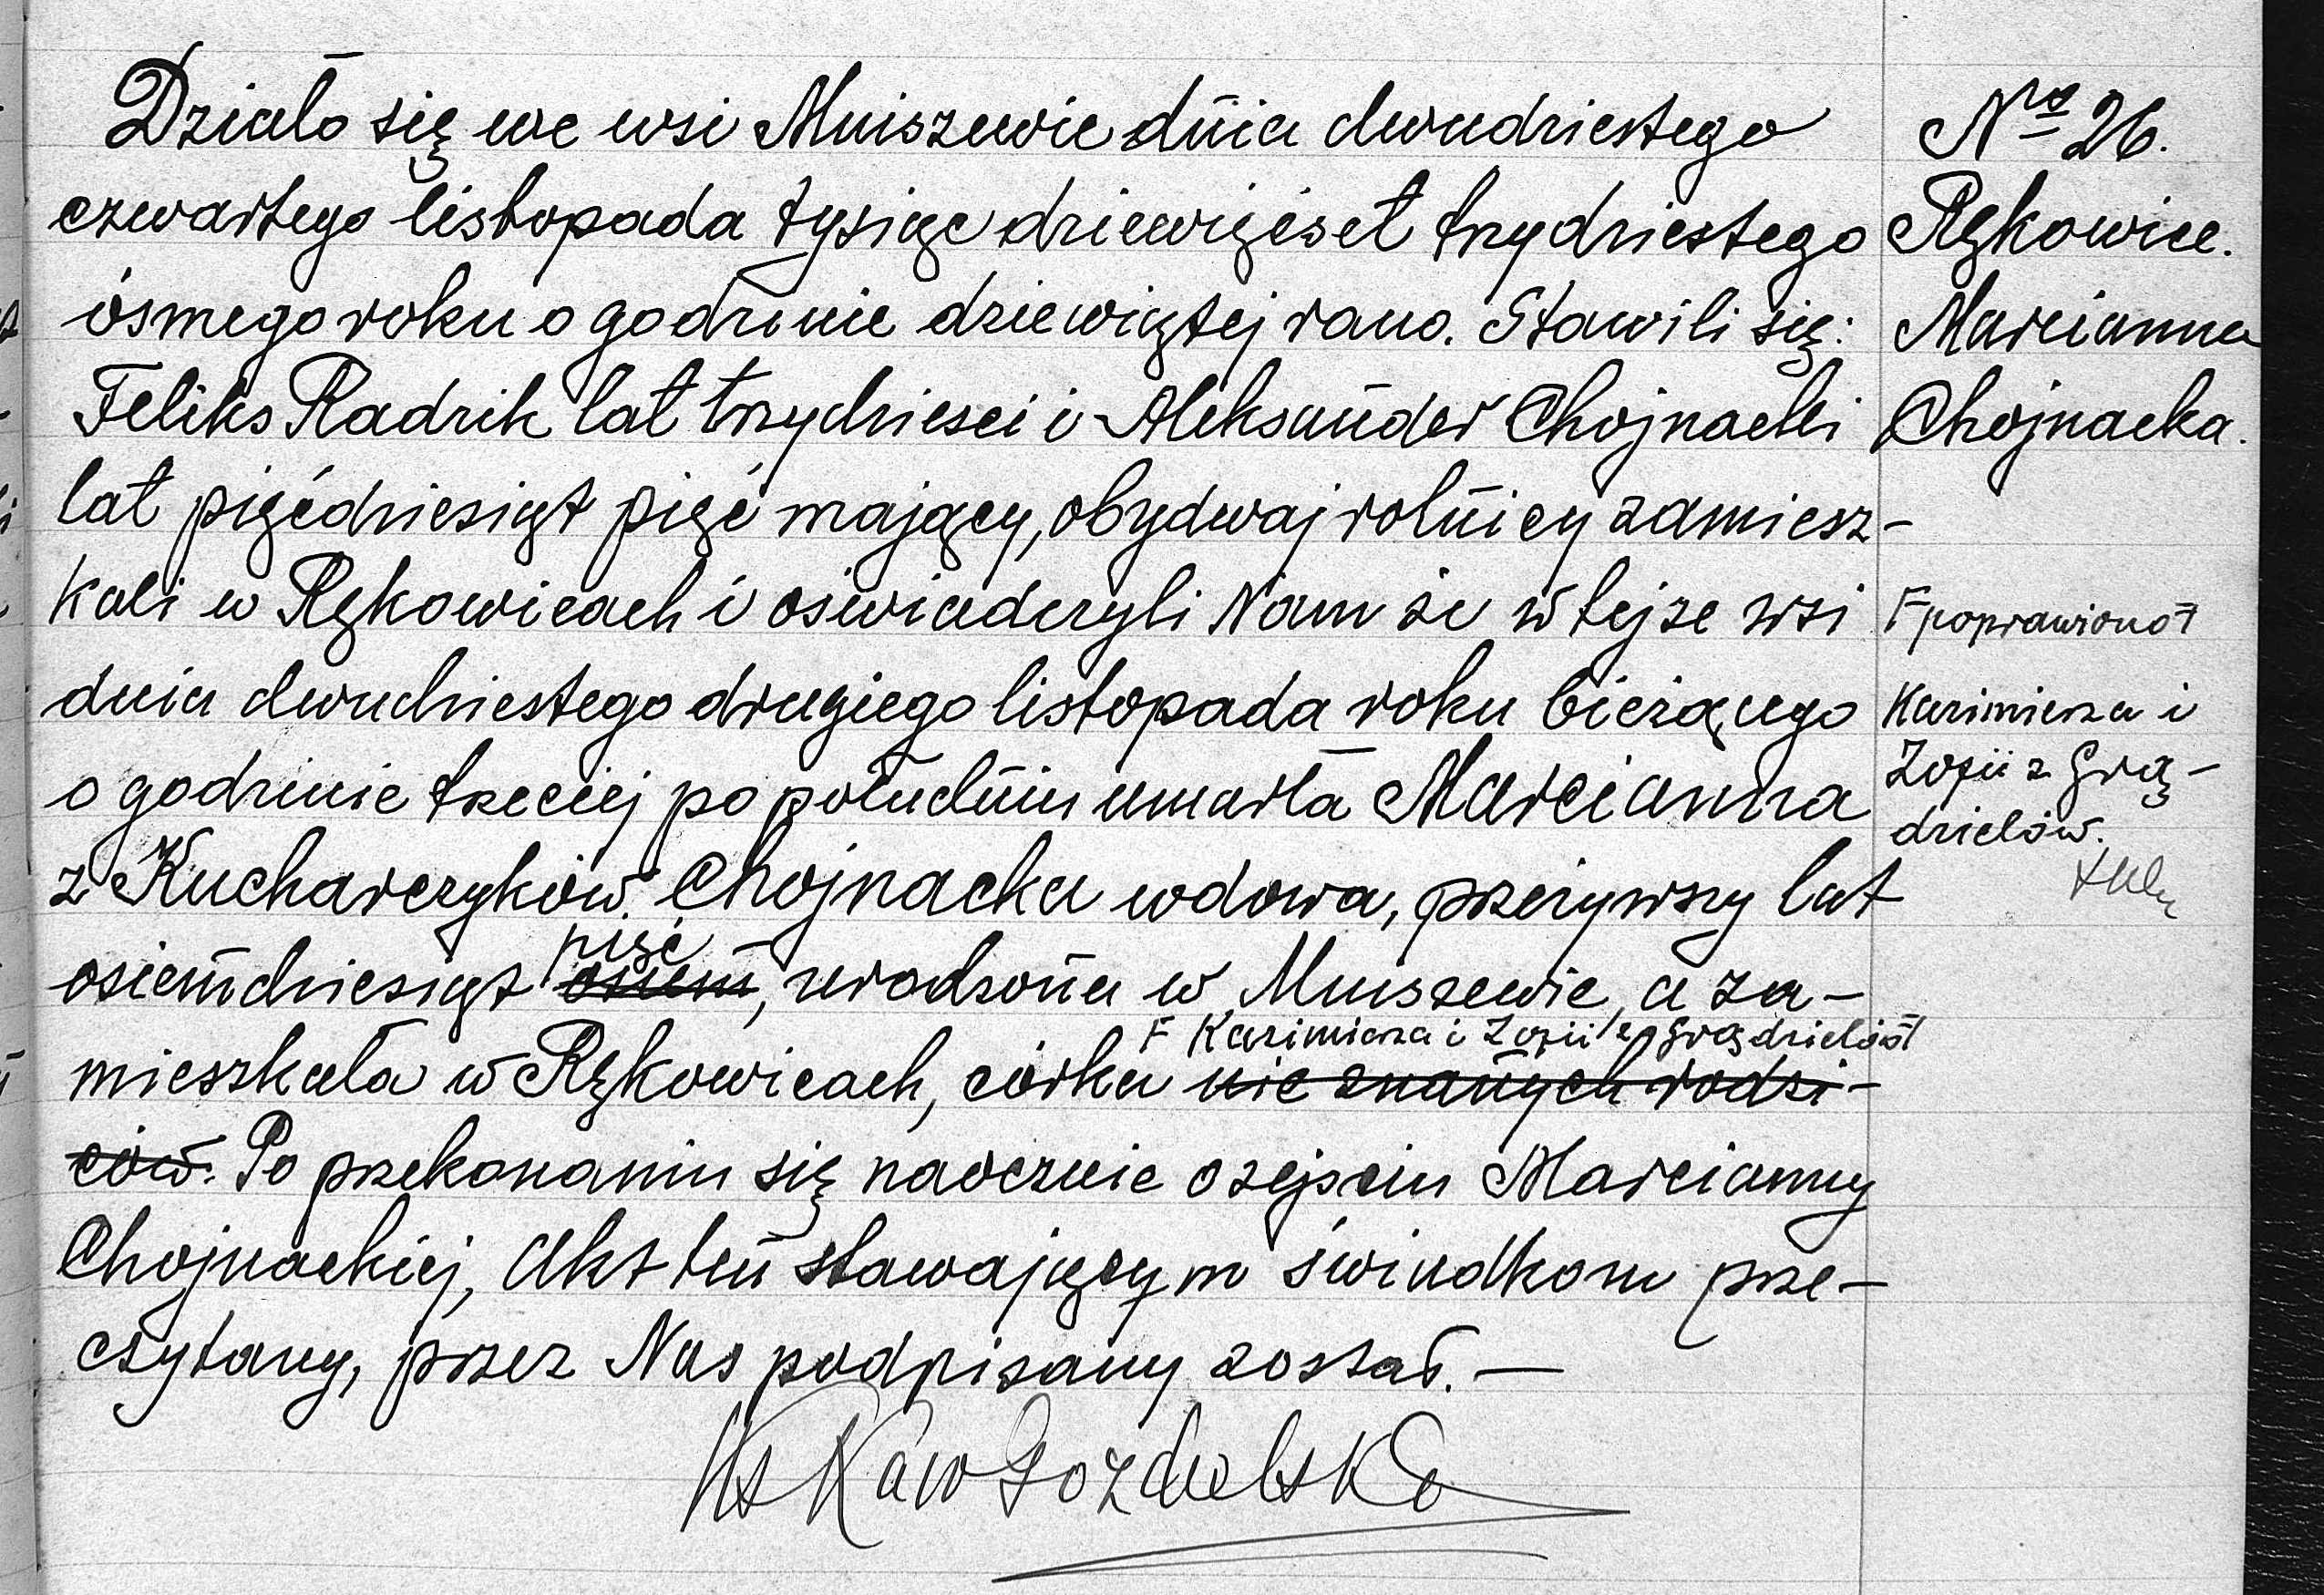 Działo się we wsi Mniszewie dnia dwudziestego
czwartego listopada tysiąc dziewięćset trzydziestego
ósmego roku o godzinie dziewiątej rano. Stawili się:
Feliks Radzik lat trzydzieści i Aleksander Chojnacki
lat pięćdziesiąt pięć mający, obydwaj rolnicy zamiesz-
kali w Rękowicach i oświadczyli Nam że w tejże wsi
dnia dwudziestego drugiego listopada roku bieżącego
o godzinie trzeciej po południu umarła Marcianna
z Kucharczyków Chojnacka wdowa, przeżywszy lat
pięć
osiemdziesiąt osiem, urodzona w Mniszewie, a za-
F Kazimierza i Zofii z Grądzielów
mieszkała w Rękowicach, córka nie znanych rodzi-
ców. Po przekonaniu się naocznie o zejściu Marcianny
Chojnackiej, Akt ten stawającym świadkom prze-
czytany, przez Nas podpisany został. —
Nro 26.
Rękowice.
Marcianna
Chojnacka.
F poprawiono
Kazimierza i
Zofii z Grą-
dzielów.